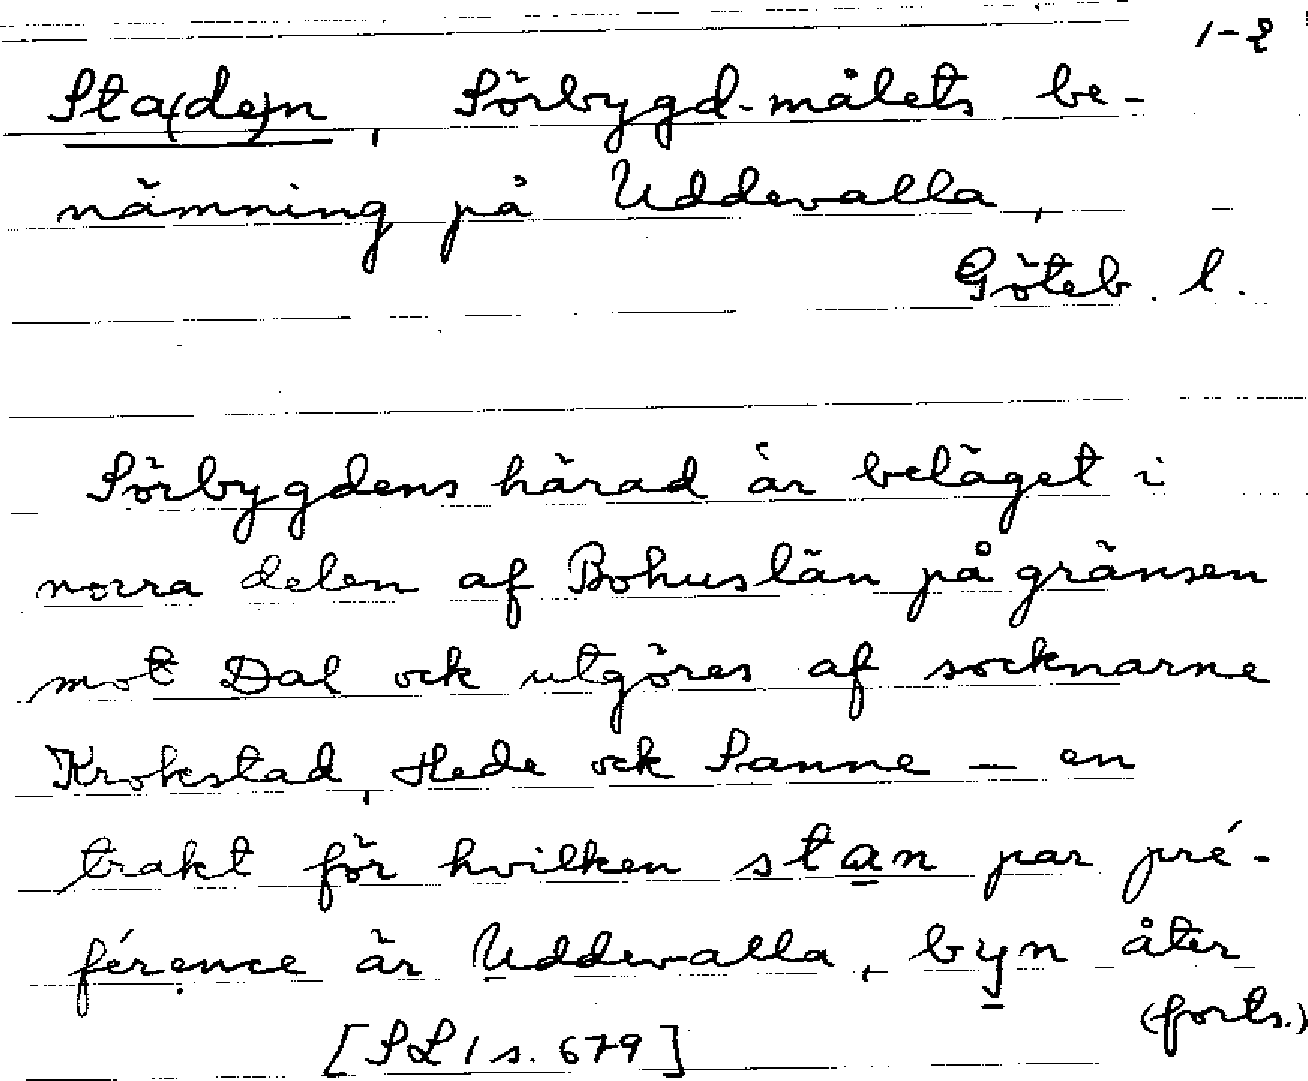 1-2
Sta(de)n, Sörbygd-målets be-
nämning på Uddevalla,
Göteb. l.
Sörbygdens härad är beläget i
norra delen af Bohuslän på gränsen
mot Dal ock utgöres af socknarne
Krokstad, Hede ock Sanne – en
trakt för hvilken stan par pré-
férence är Uddevalla, byn åter
(forts.)
[SL 1 s. 679]